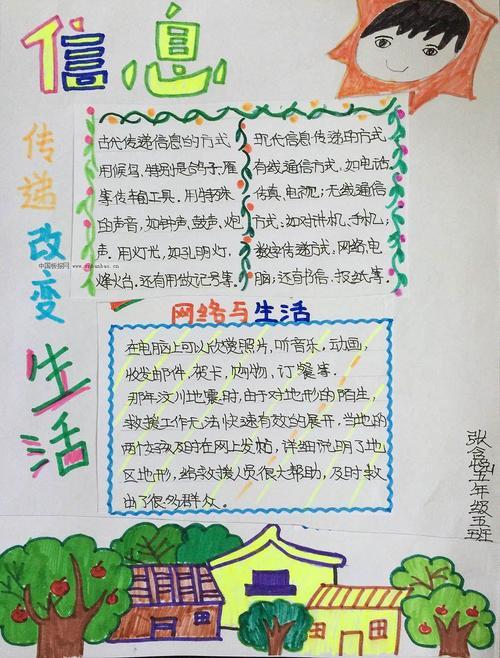 信息
传递改变生活
古代传递信息的方式
用候鸟,特别是鸽子,雁
等传输工具.用特殊
的声音,如钟声,鼓声、炮
声.用灯光,如孔明灯,
烽火台.还有用做记号等.
现代信息传递的方式
有线通信方式,如电话
传真、电视;无线通信
方式:如对讲机、手机;
数字传递方式,网络,电
脑;还有书信、报纸等.
中国板报网
网络与生活
在电脑上可以欣赏照片,听音乐,动画,
收发邮件,贺卡,购物,订餐等.
那年汶川地震时,由于对地形的陌生,
救援工作无法快速有效的展开,当地的
网上发帖,详细说明了地
区地形,给救援人员很大帮助,及时救
出了很多群众.
五年级五班